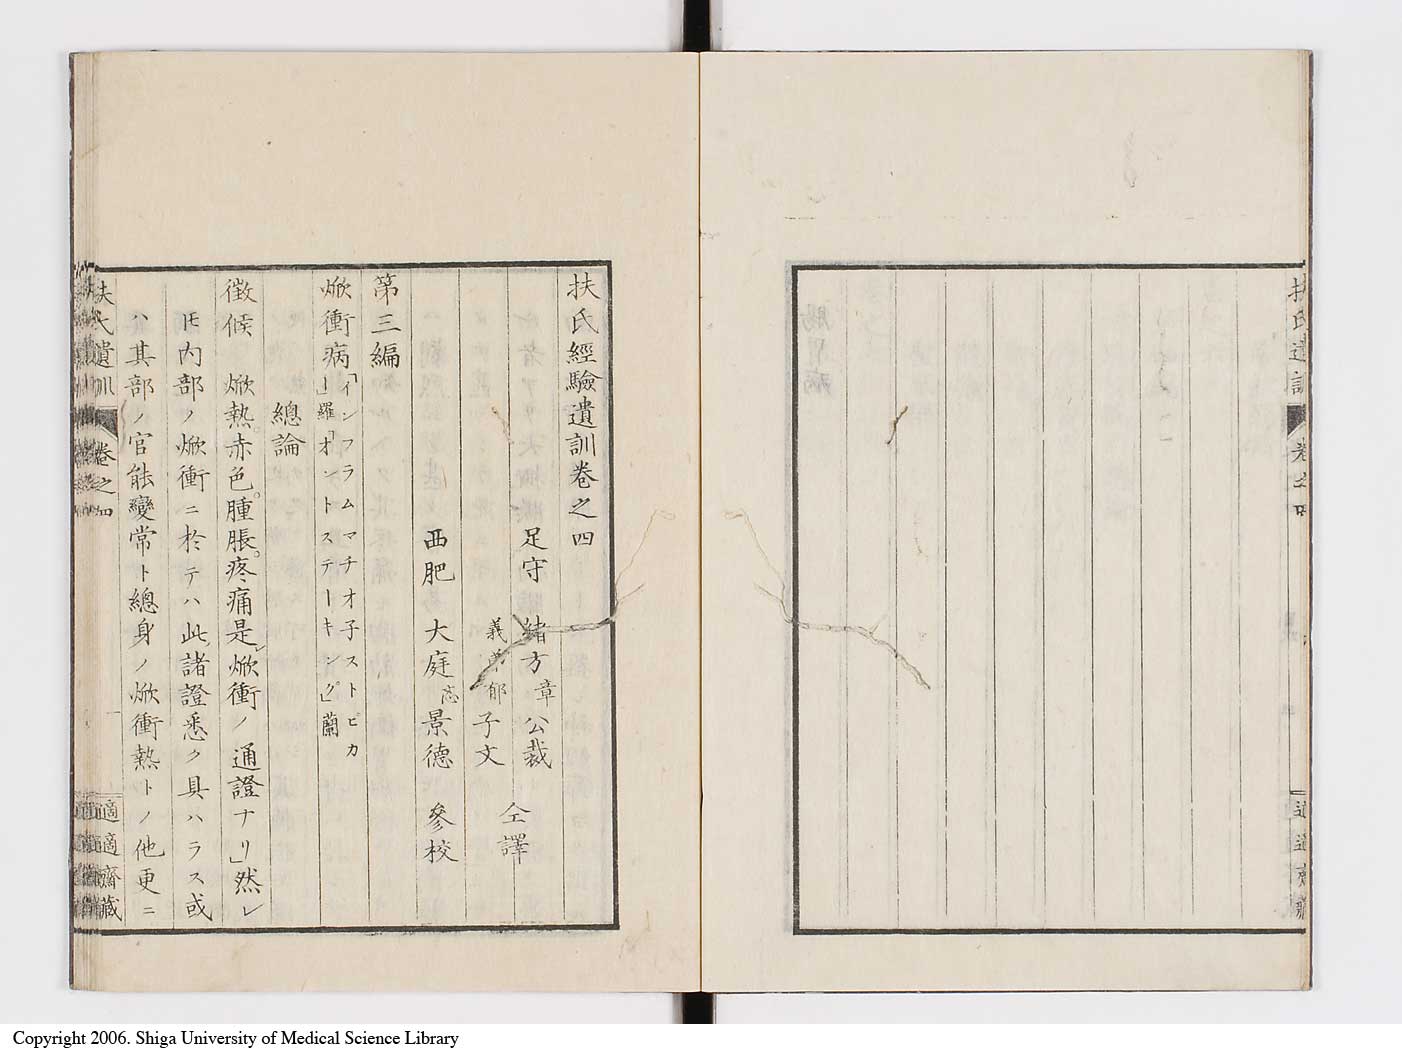 扶氏遺訓
卷之四
扶氏經驗遺訓卷之四
足守 緒方章公裁
義弟郁子文 仝譯
西肥 大庭忞景德 參校
第三編
焮衝病「インフラムマチオ子ストピカ」羅「オントステーキング」蘭
總論
徵候 焮熱。赤色。腫脹。疼痛是レ焮衝ノ通證ナリ」然レ
𪜈內部ノ焮衝ニ於テハ此諸證悉ク具ハラス或
ハ其部ノ官能變常ト總身ノ焮衝熱トノ他更ニ
扶氏遺訓
卷之四
一
適適齋藏
Copyright 2006. Shiga University of Medical Science Library